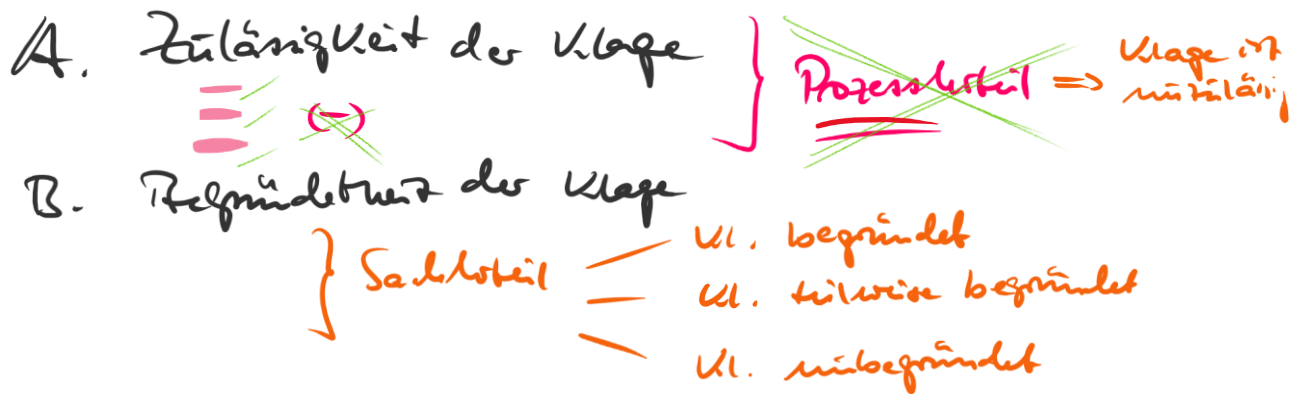 A. Zulässigkeit der Klage } Prozessurteil => Klage ist
unzulässig
(-)
B. Begründetheit der Klage
} Sachurteil
Kl. begründet
Kl. teilweise begründet
Kl. unbegründet